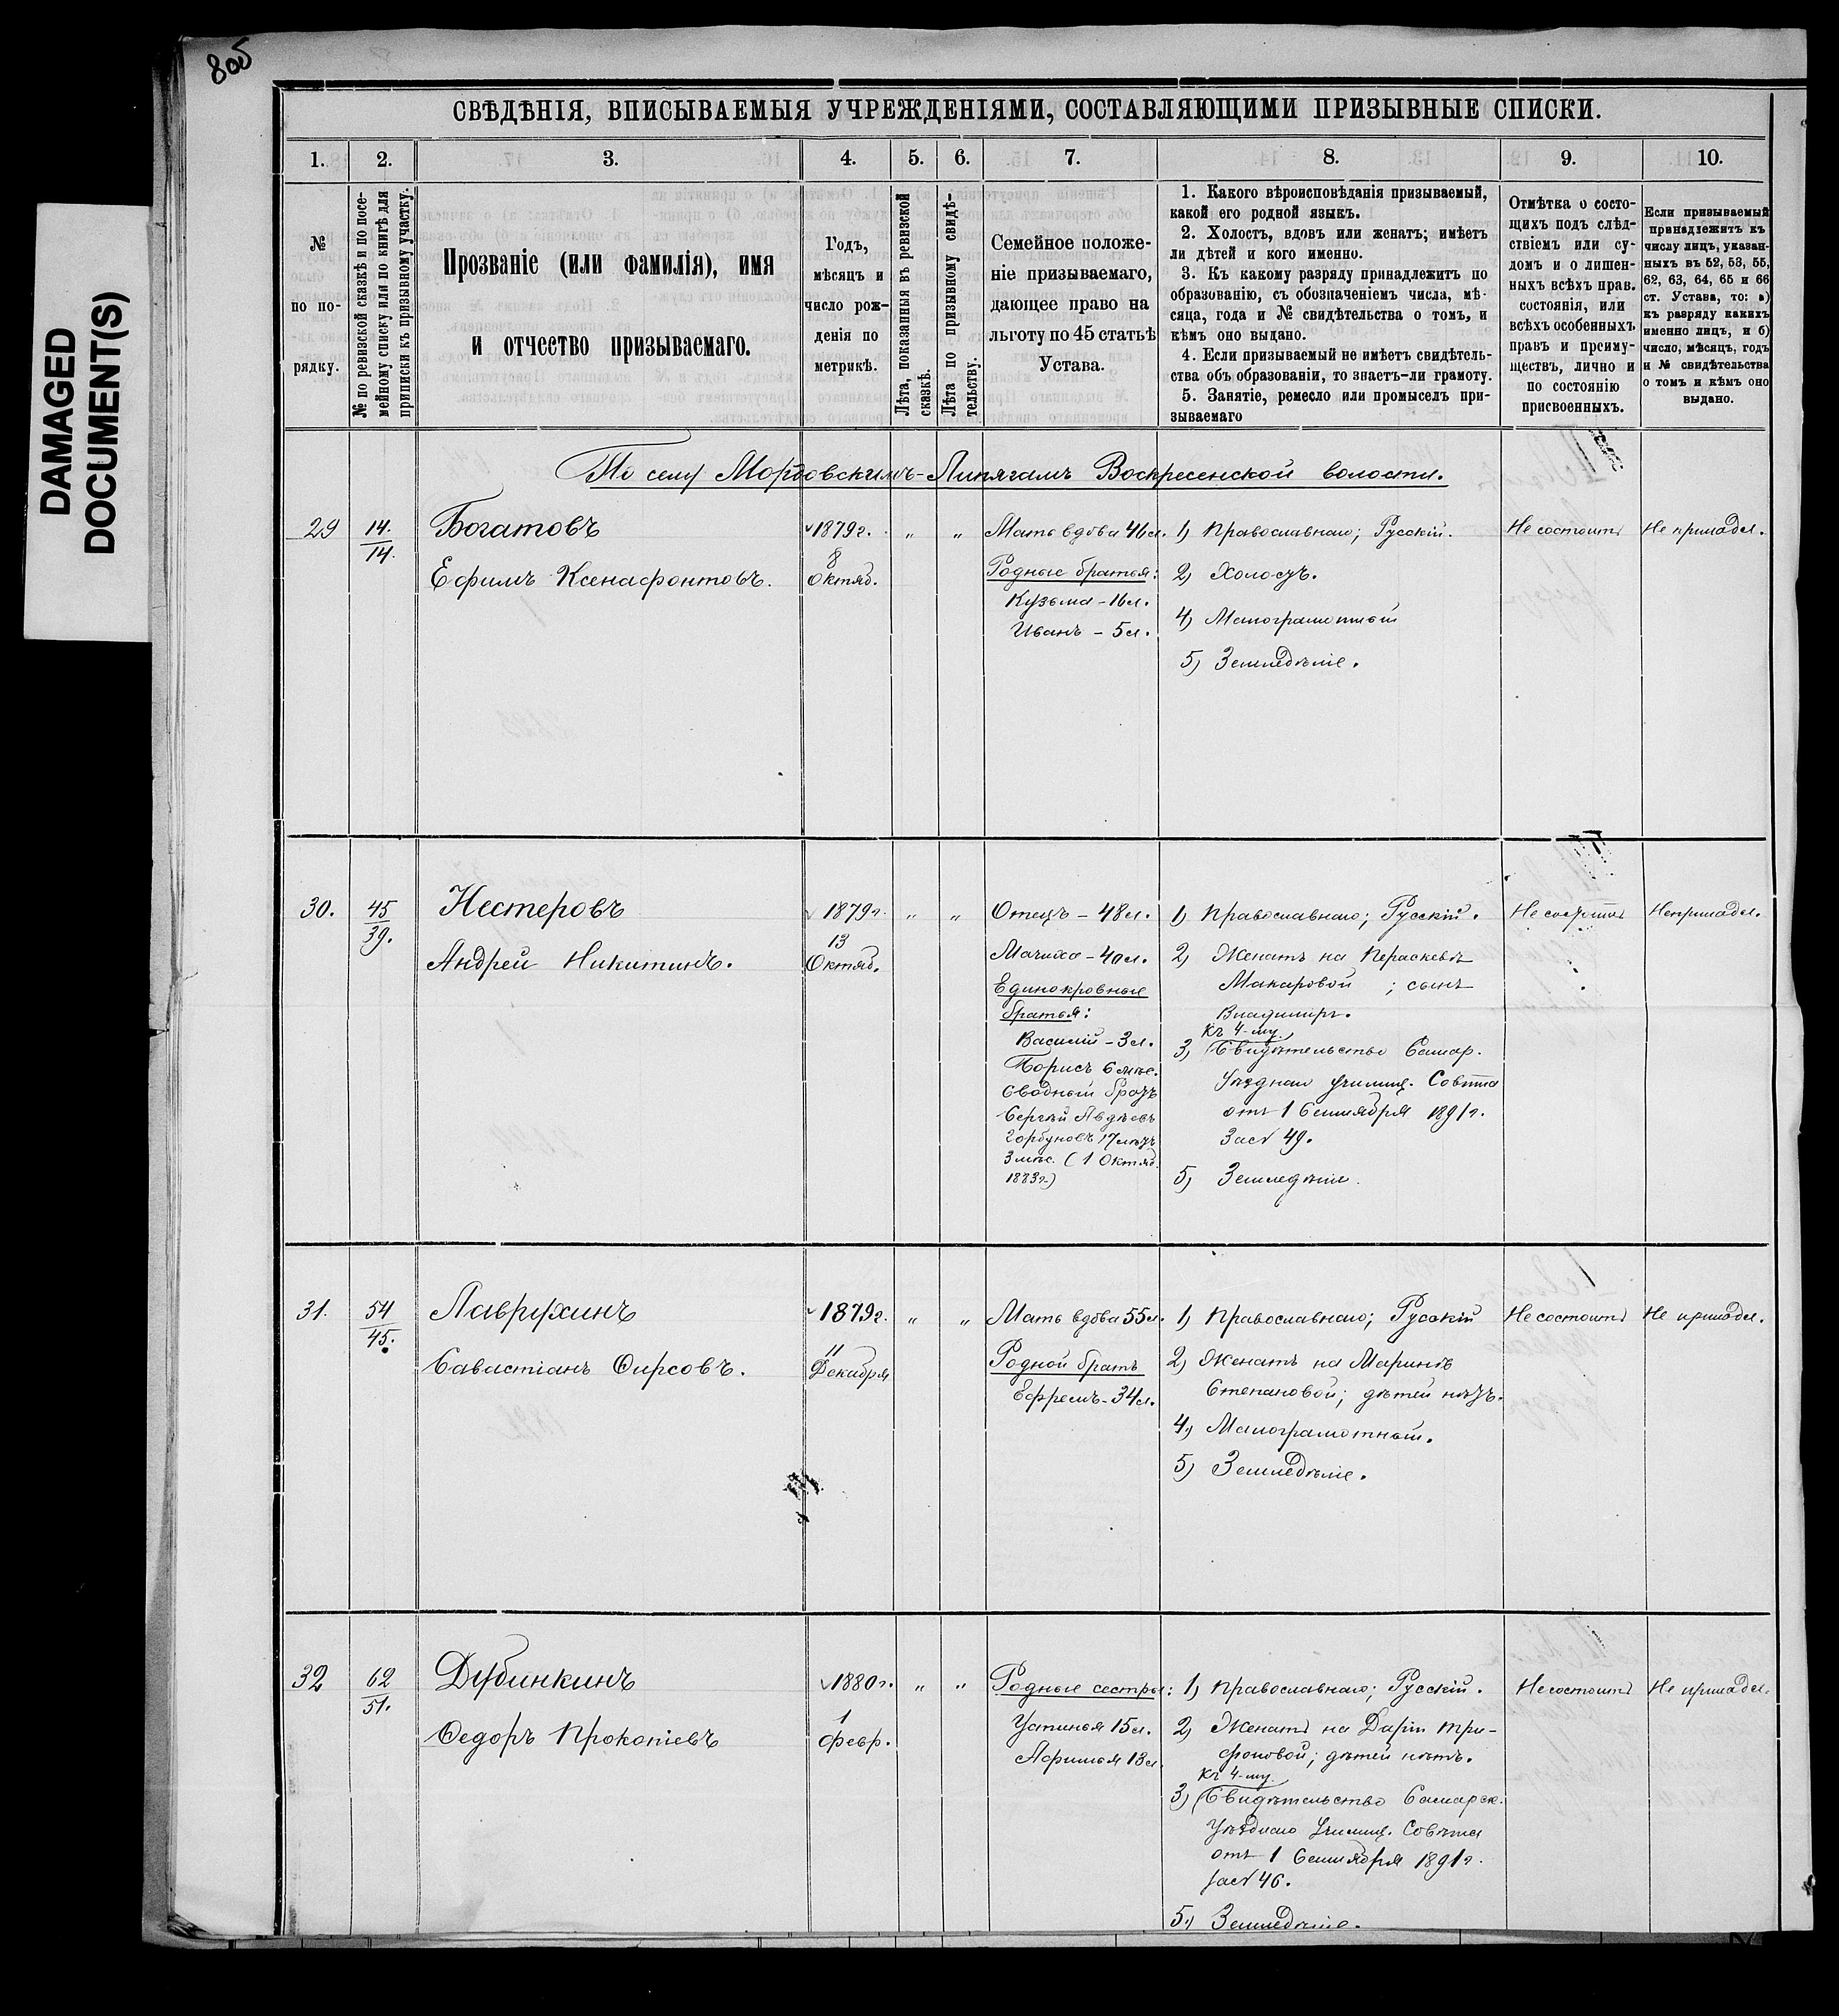 DAMAGED
DOCUMENT(S)
805
СВѢДѢНІЯ, ВПИСЫВАЕМЫЯ УЧРЕЖДЕНІЯМИ, СОСТАВЛЯЮЩИМИ ПРИЗЫВНЫЕ СПИСКИ.
1. 2. 3. 4. 5. 6. 7. 8. 9. 10.
№
по по-
рядку.
№ по ревизской сказкѣ и по посе-
мейному списку или по книгѣ для
приписки къ призывному участку.
Прозваніе (или фамилія), имя
и отчество призываемаго.
Годъ,
мѣсяцъ и
число рож-
денія по
метрикѣ.
Лѣта, показанныя въ ревизской
сказкѣ.
Лѣта по призывному свидѣ-
тельству.
Семейное положе-
ніе призываемаго,
дающее право на
льготу по 45 статьѣ
Устава.
1. Какого вѣроисповѣданія призываемый,
какой его родной языкъ.
2. Холостъ, вдовъ или женатъ; имѣетъ
ли дѣтей и кого именно.
3. Къ какому разряду принадлежитъ по
образованію, съ обозначеніемъ числа, мѣ-
сяца, года и № свидѣтельства о томъ, и
кѣмъ оно выдано.
4. Если призываемый не имѣетъ свидѣтель-
ства объ образованіи, то знаетъ-ли грамоту.
5. Занятіе, ремесло или промыселъ при-
зываемаго
Отмѣтка о состо-
щихъ подъ слѣд-
ствіемъ или су-
домъ и о лишен-
ныхъ всѣхъ прав.
состоянія, или
всѣхъ особенныхъ
правъ и преиму-
ществъ, лично и
по состоянію
присвоенныхъ.
Если призываемый
принадлежитъ къ
числу лицъ, указан-
ныхъ въ 52, 53, 55,
62, 63, 64, 65 и 66
ст. Устава, то: а)
къ разряду какихъ
именно лицъ, и б)
число, мѣсяцъ, годъ
и № свидѣтельства
о томъ и кѣмъ оно
выдано.
По селу Мордовскимъ-Липягамъ Воскресенской волости.
29
14.
14.
Богатовъ
Ефимъ Ксенафонтовъ.
1879г.
8
Октяб.
" "
Мать вдова 46л.
Родные братья:
Кузьма - 16л.
Иванъ - 5л.
1) Православнаго; Русскій.
2) Холостъ.
4) Малограмотный
5) Земледѣліе.
Не состоитъ
Не принадл.
30.
45
39.
Нестеровъ
Андрей Никитинъ.
1879г.
13
Октяб.
" "
Отецъ - 48л.
Мачиха - 40л.
Единокровные
братья:
Василій - 3л.
Борисъ 6 мѣс.
Сводный братъ
Сергѣй Авдѣевъ
Горбуновъ 17 лѣтъ
3 мѣс. (1 Октяб.
1883г.)
1) Православнаго; Русскій.
2) Женатъ на Параскевѣ
Макаровой ; сынъ
Владиміръ.
Къ 4-му.
3) Свидѣтельство Самар.
Уѣзднаго Училищ. Совѣта
отъ 1 Сентября 1891г.
за № 49.
5) Земледѣліе.
Не состоитъ
Не принадл.
31.
54
45.
Лаврухинъ
Савастіанъ Ѳирсовъ.
1879г.
11
Декабря
" "
Мать вдова 55л.
Родной братъ
Ефремъ - 34л.
1) Православнаго; Русскій
2) Женатъ на Маринѣ
Степановой; дѣтей нѣтъ.
4) Малограмотный.
5) Земледѣліе.
Не состоитъ
Не принадл.
32
62
51.
Дубинкинъ
Ѳедоръ Прокопіевъ
1880г.
1
февр.
" "
Родные сестры:
Устинья 15л.
Афимья 13л.
1) Православнаго; Русскій.
2) Женатъ на Даріи Три-
фоновой; дѣтей нѣтъ.
Къ 4-му.
3) Свидѣтельство Самарск.
Уѣзднаго Училищ. Совѣта
отъ 1 Сентября 1891г.
за № 46.
5.) Земледѣліе.
Не состоитъ
Не принадл.